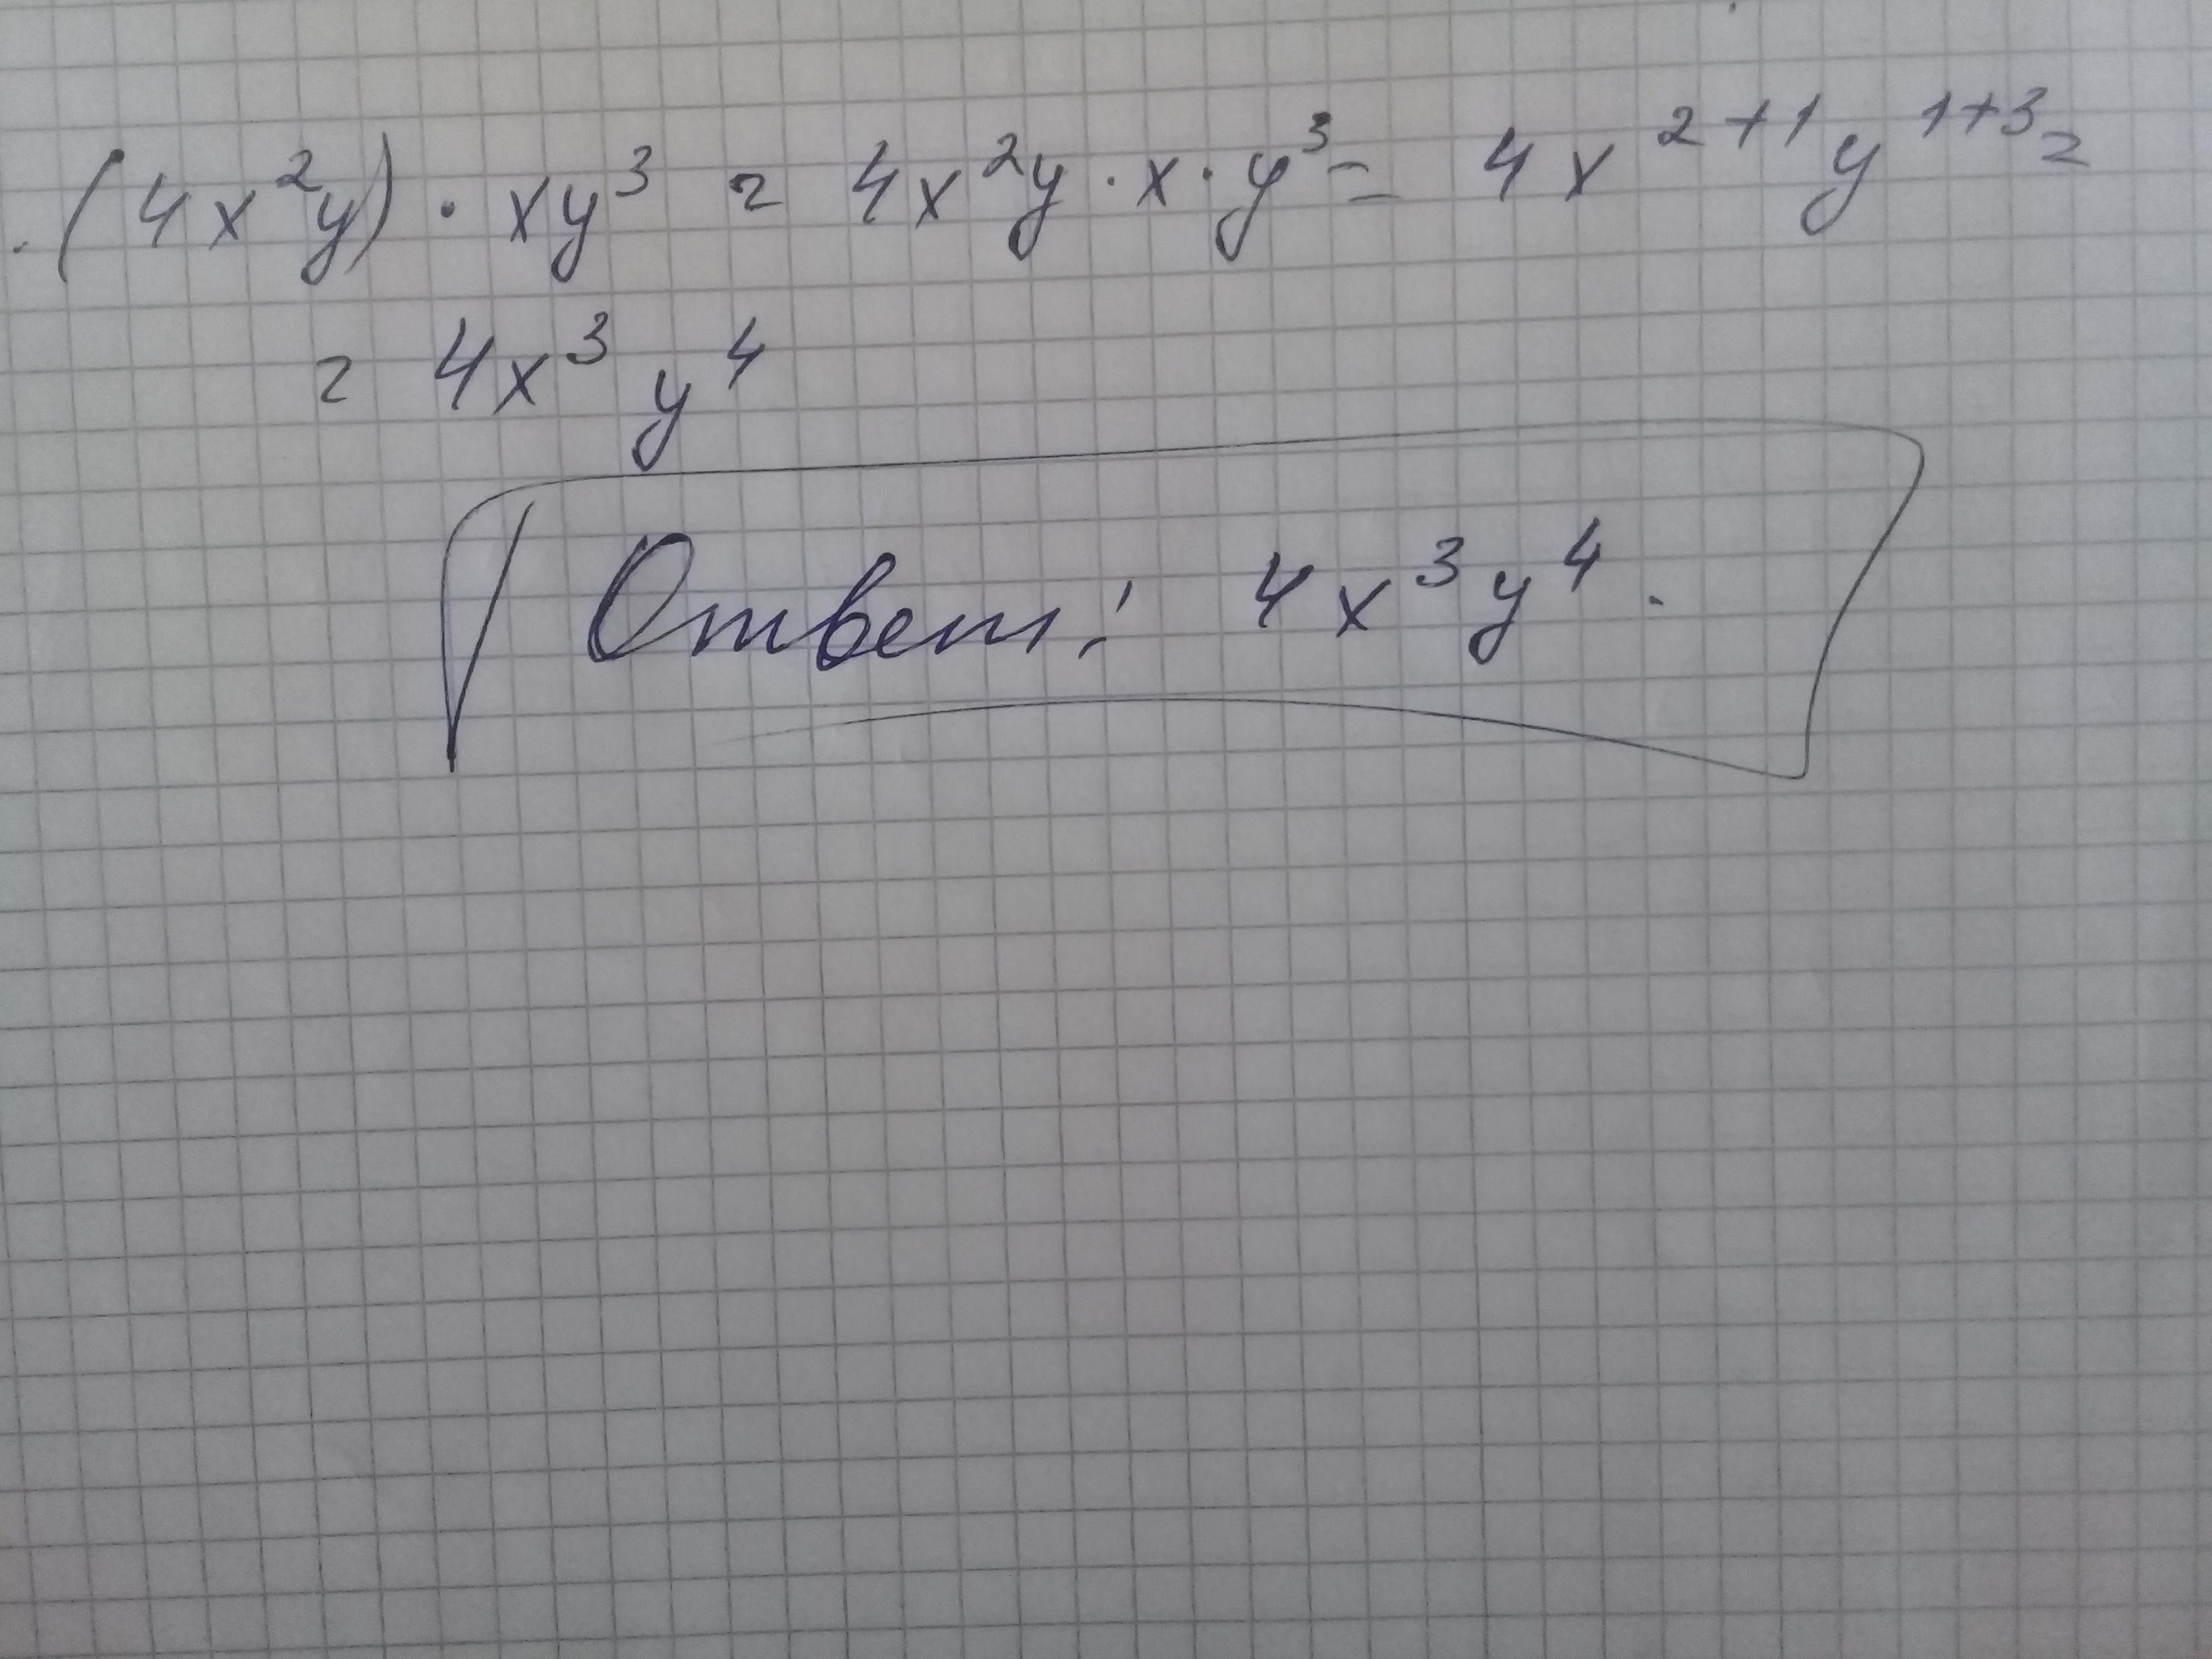 (4x²y) · xy³ = 4x²y · x · y³ = 4x²⁺¹y¹⁺³ =
= 4x³y⁴
Ответ: 4x³y⁴.